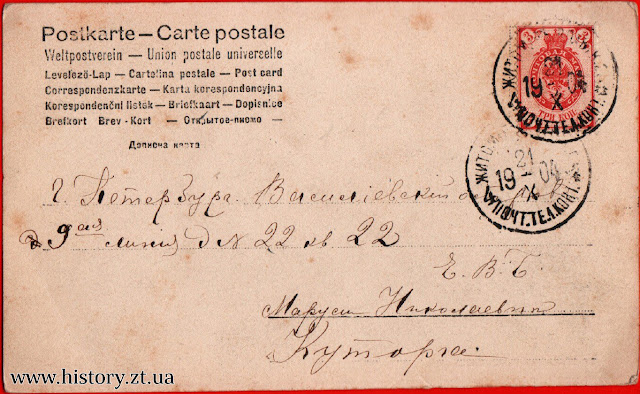 Postkarte — Carte postale
Weltpostverein — Union postale universelle
Levelező-Lap — Cartolina postale — Post card
Correspondenzkarte — Karta korespondencyjna
Korespondenční listek — Briefkaart — Dopisnice
Brefkort Brev-Kort — Открытое-письмо —
Дописна карта
3 3
ТРИ КОП
21
19 04
X
ПОЧТ.ТЕЛ.КОН
ЖИТОМ
21
19 04
X
ПОЧТ.ТЕЛ.КОНТ
г. Петербург. Васильевский
9ая линия д № 22 кв. 22
Е. В. Б.
Маруси Николаевны
Куторга.
www.history.zt.ua